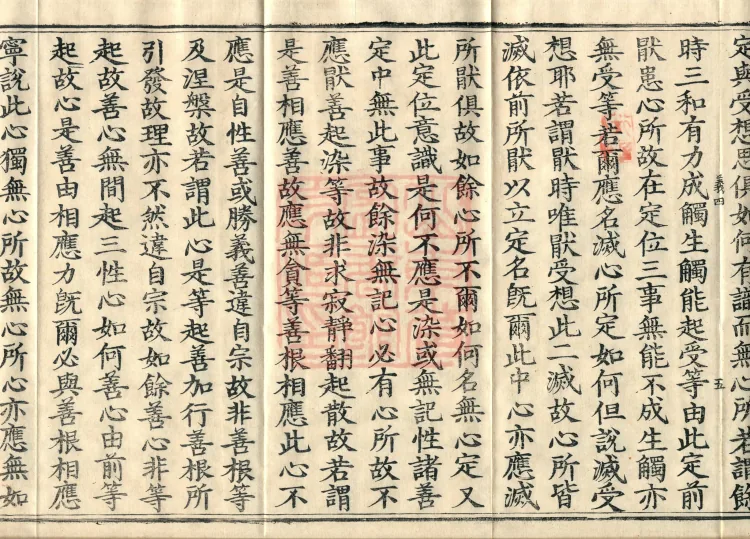 定與受想思俱如何有識而無心所若謂餘
義四
五
時三和有力成觸生觸能起受等由此定前
猒患心所故在定位三事無能不成生觸亦
無受等若爾應名滅心所定如何但說滅受
想耶若謂猒時唯猒受想此二滅故心所皆
滅依前所猒以立定名旣爾此中心亦應滅
所猒俱故如餘心所不爾如何名無心定又
此定位意識是何不應是染或無記性諸善
定中無此事故餘染無記心必有心所故不
應猒善起染等故非求寂靜翻起散故若謂
是善相應善故應無貪等善根相應此心不
應是自性善或勝義善違自宗故非善根等
及涅槃故若謂此心是等起善加行善根所
引發故理亦不然違自宗故如餘善心非等
起故善心無間起三性心如何善心由前等
起故心是善由相應力旣爾必與善根相應
寧說此心獨無心所故無心所心亦應無如